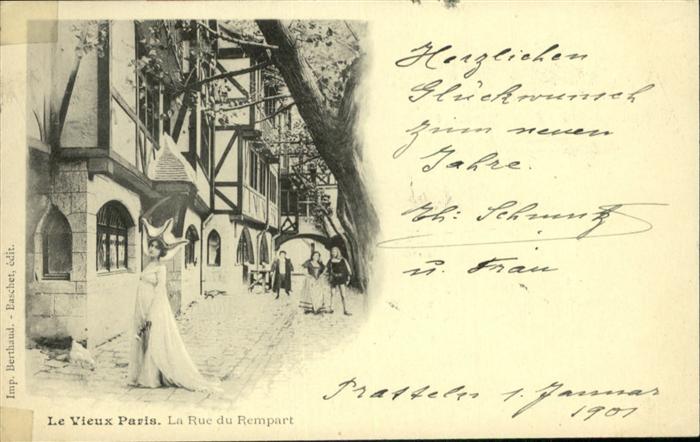 Herzlichen
Glückwunsch
zum neuen
Jahre.
Th: Schmutz
u. Frau
Pratteln 1. Januar
1901
Le Vieux Paris. La Rue du Rempart
Imp. Berthaud. - Easchet, édit.